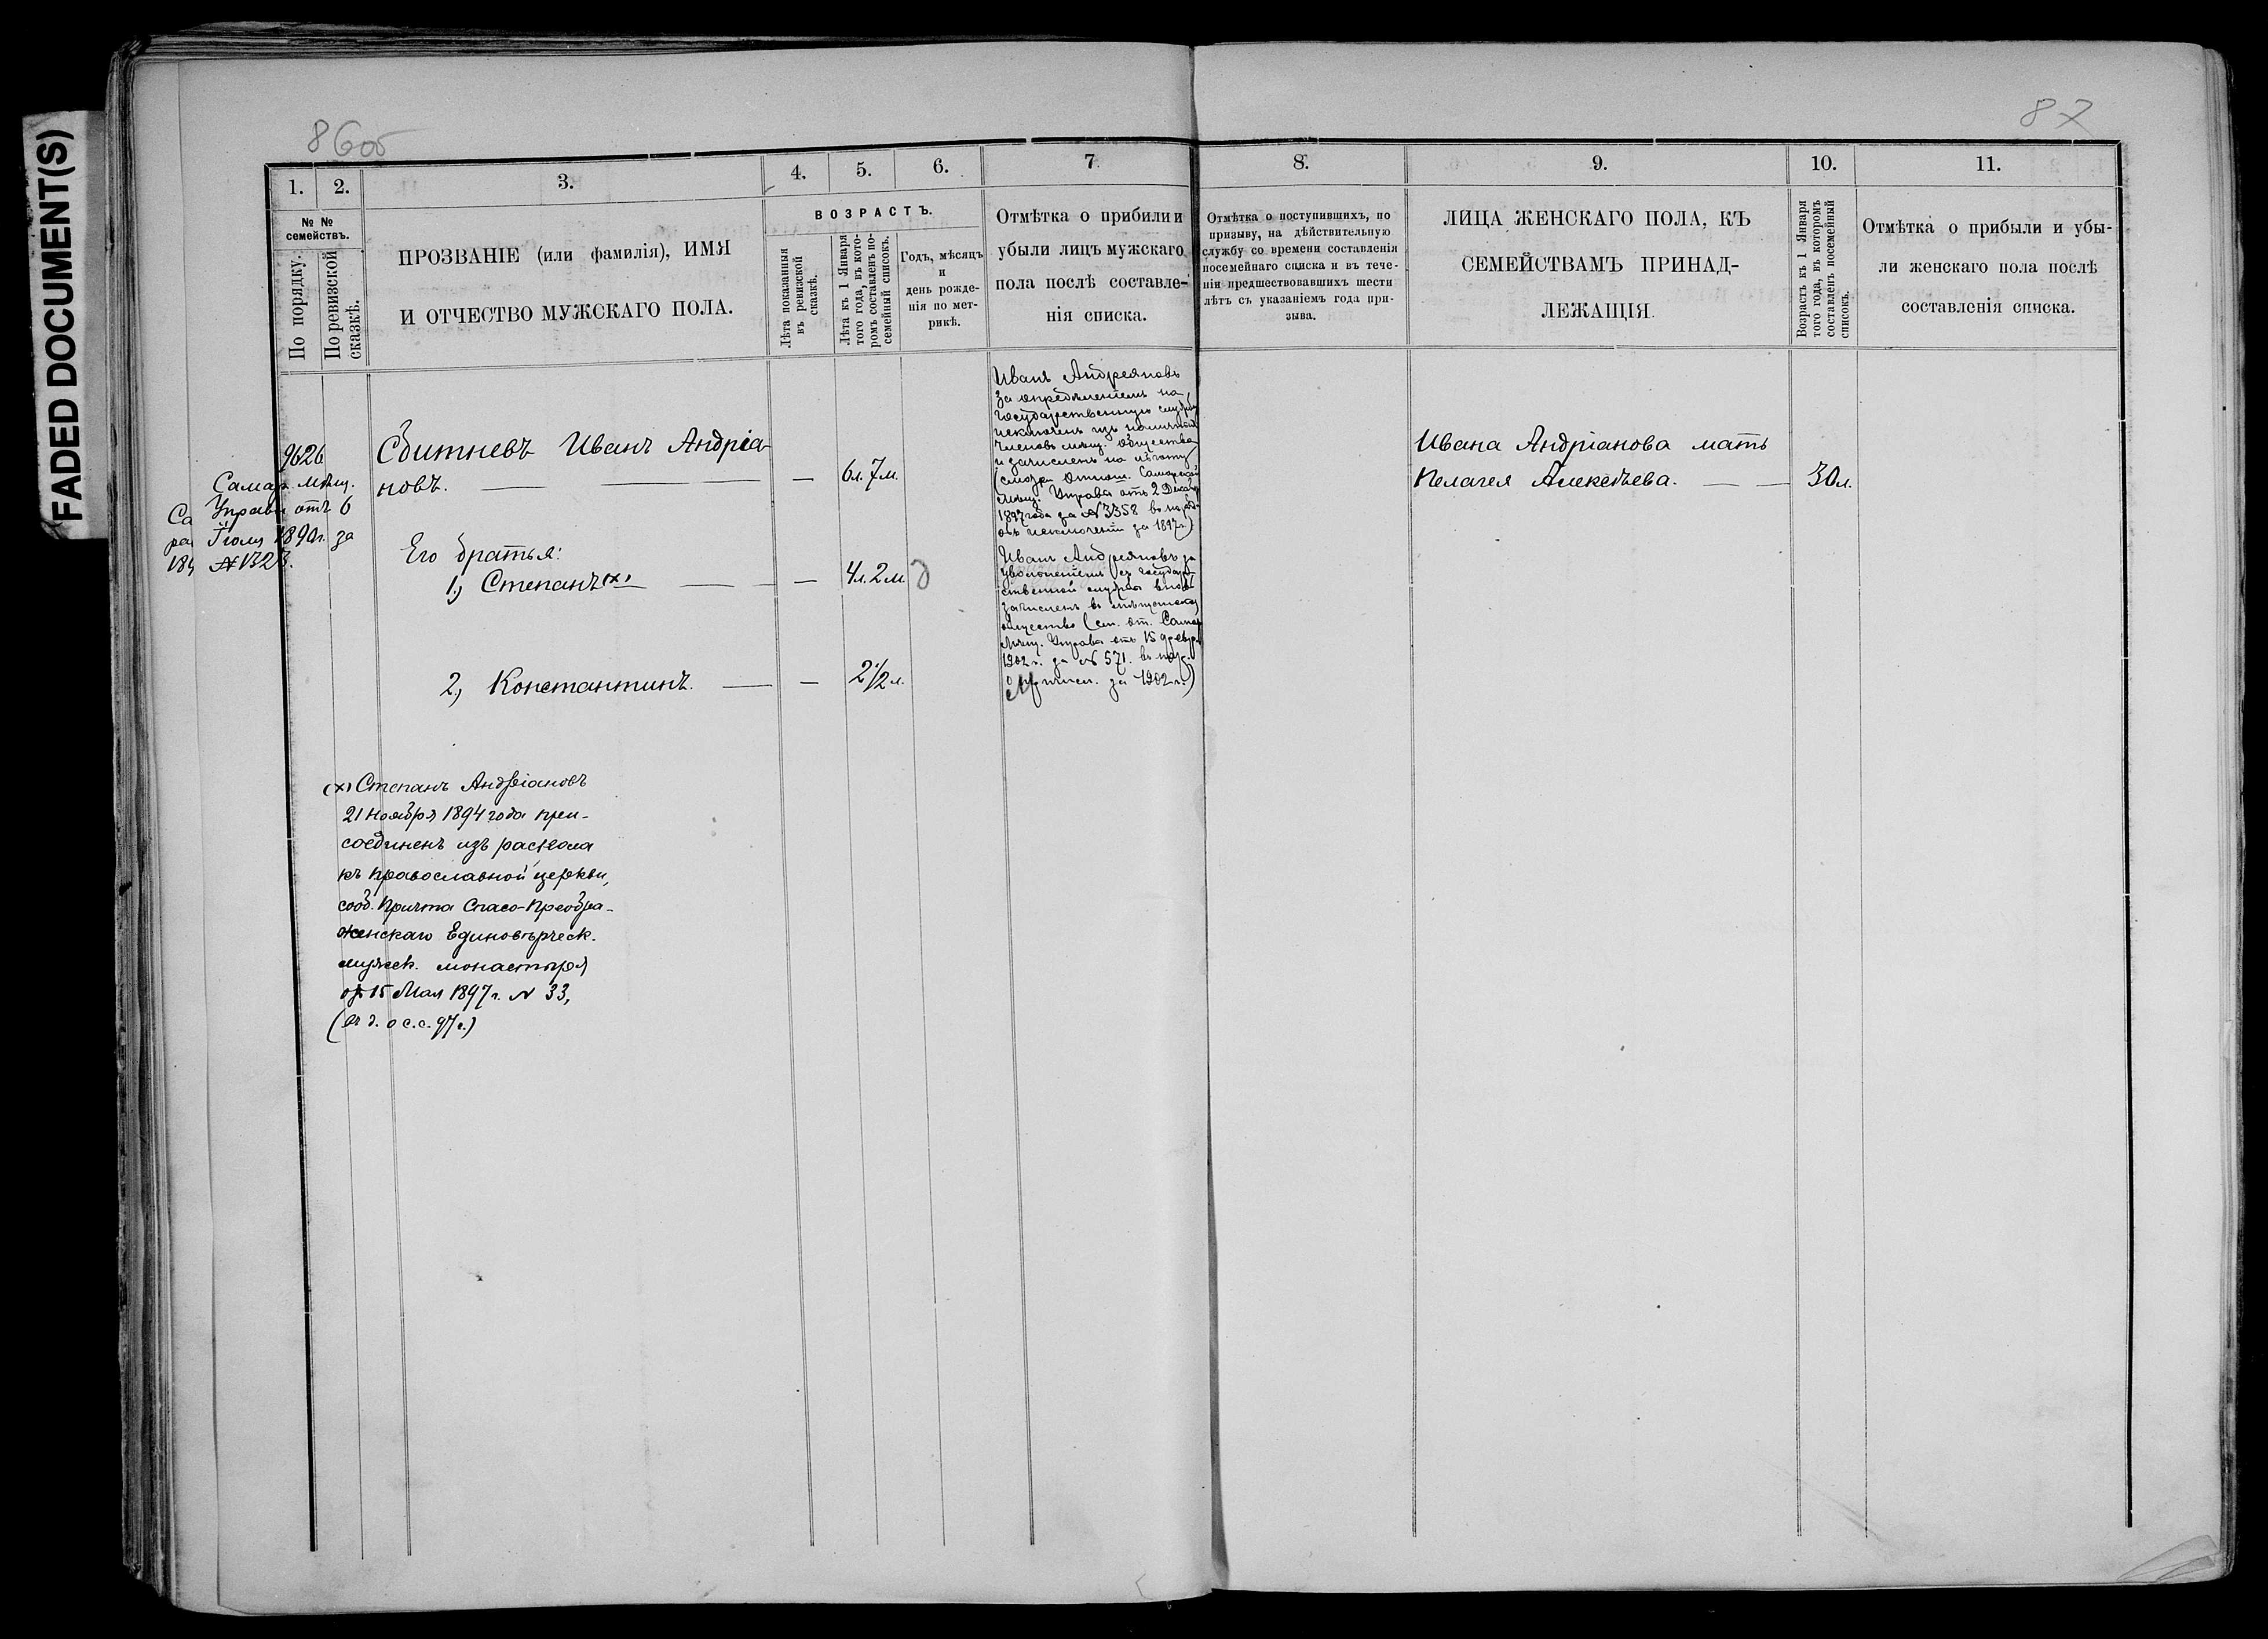 FADED DOCUMENT(S)
86об
87
1.
2.
3.
4.
5.
6.
7.
8.
9.
10.
11.
№ №
семействъ.
По порядку.
По ревизской
сказкѣ.
ПРОЗВАНІЕ (или фамилія), ИМЯ
И ОТЧЕСТВО МУЖСКАГО ПОЛА.
ВОЗРАСТЪ.
Лѣта показанныя
въ ревизской
сказкѣ.
Лѣта къ 1 Января
того года, въ кото-
ромъ составленъ по-
семейный списокъ.
Годъ, мѣсяцъ
и
день рожде-
нія по мет-
рикѣ.
Отмѣтка о прибыли и
убыли лицъ мужскаго
пола послѣ составле-
нія списка.
Отмѣтка о поступившихъ, по
призыву, на дѣйствительную
службу со времени составленія
посемейнаго списка и въ тече-
ніи предшествовавшихъ шести
лѣтъ съ указаніемъ года при-
зыва.
ЛИЦА ЖЕНСКАГО ПОЛА, КЪ
СЕМЕЙСТВАМЪ ПРИНАД-
ЛЕЖАЩІЯ.
Возрастъ къ 1 Января
того года, въ которомъ
составленъ посемейный
списокъ.
Отмѣтка о прибыли и убы-
ли женскаго пола послѣ
составленія списка.
9626
Самар. мѣщ.
Управы отъ 6
Іюля 1890г. за
№ 1323.
Са
ра
189
Сбитневъ Иванъ Андріа-
новъ. — — — 6л. 7м.
Его братья:
1.) Степанъ (х) — — 4л. 2м.
2.) Константинъ. — — 2½ л.
Иванъ Андреяновъ
за опредѣленіемъ на
государственную службу
исключенъ изъ
членовъ мѣщ. общества
и зачисленъ на льготу
(смотри отнош. Самарской
Мѣщ. Управы отъ 2 Декабр
1897 года за № 3358 въ наряд
объ исключеніи за 1897 г.)
Иванъ Андреяновъ за
увольненіемъ съ государ-
ственной службы вновь
зачисленъ въ мѣщанское
общество (см. от. Самар
Мѣщ. Управы отъ 15 февр.
1902 г. за № 571. въ нар.
о причисл. за 1902 г.)
Ивана Андріанова мать
Пелагея Алексѣева. — — 30л.
(х) Степанъ Андріановъ
21 Ноября 1894 года при-
соединенъ изъ раскола
къ православной церкви,
сооб. Причта Спасо-Преобра-
женскаго Единовѣрческ.
мужск. монастыря
отъ 15 Мая 1897 г. № 33,
(въ д. о с. с. 97 г.)